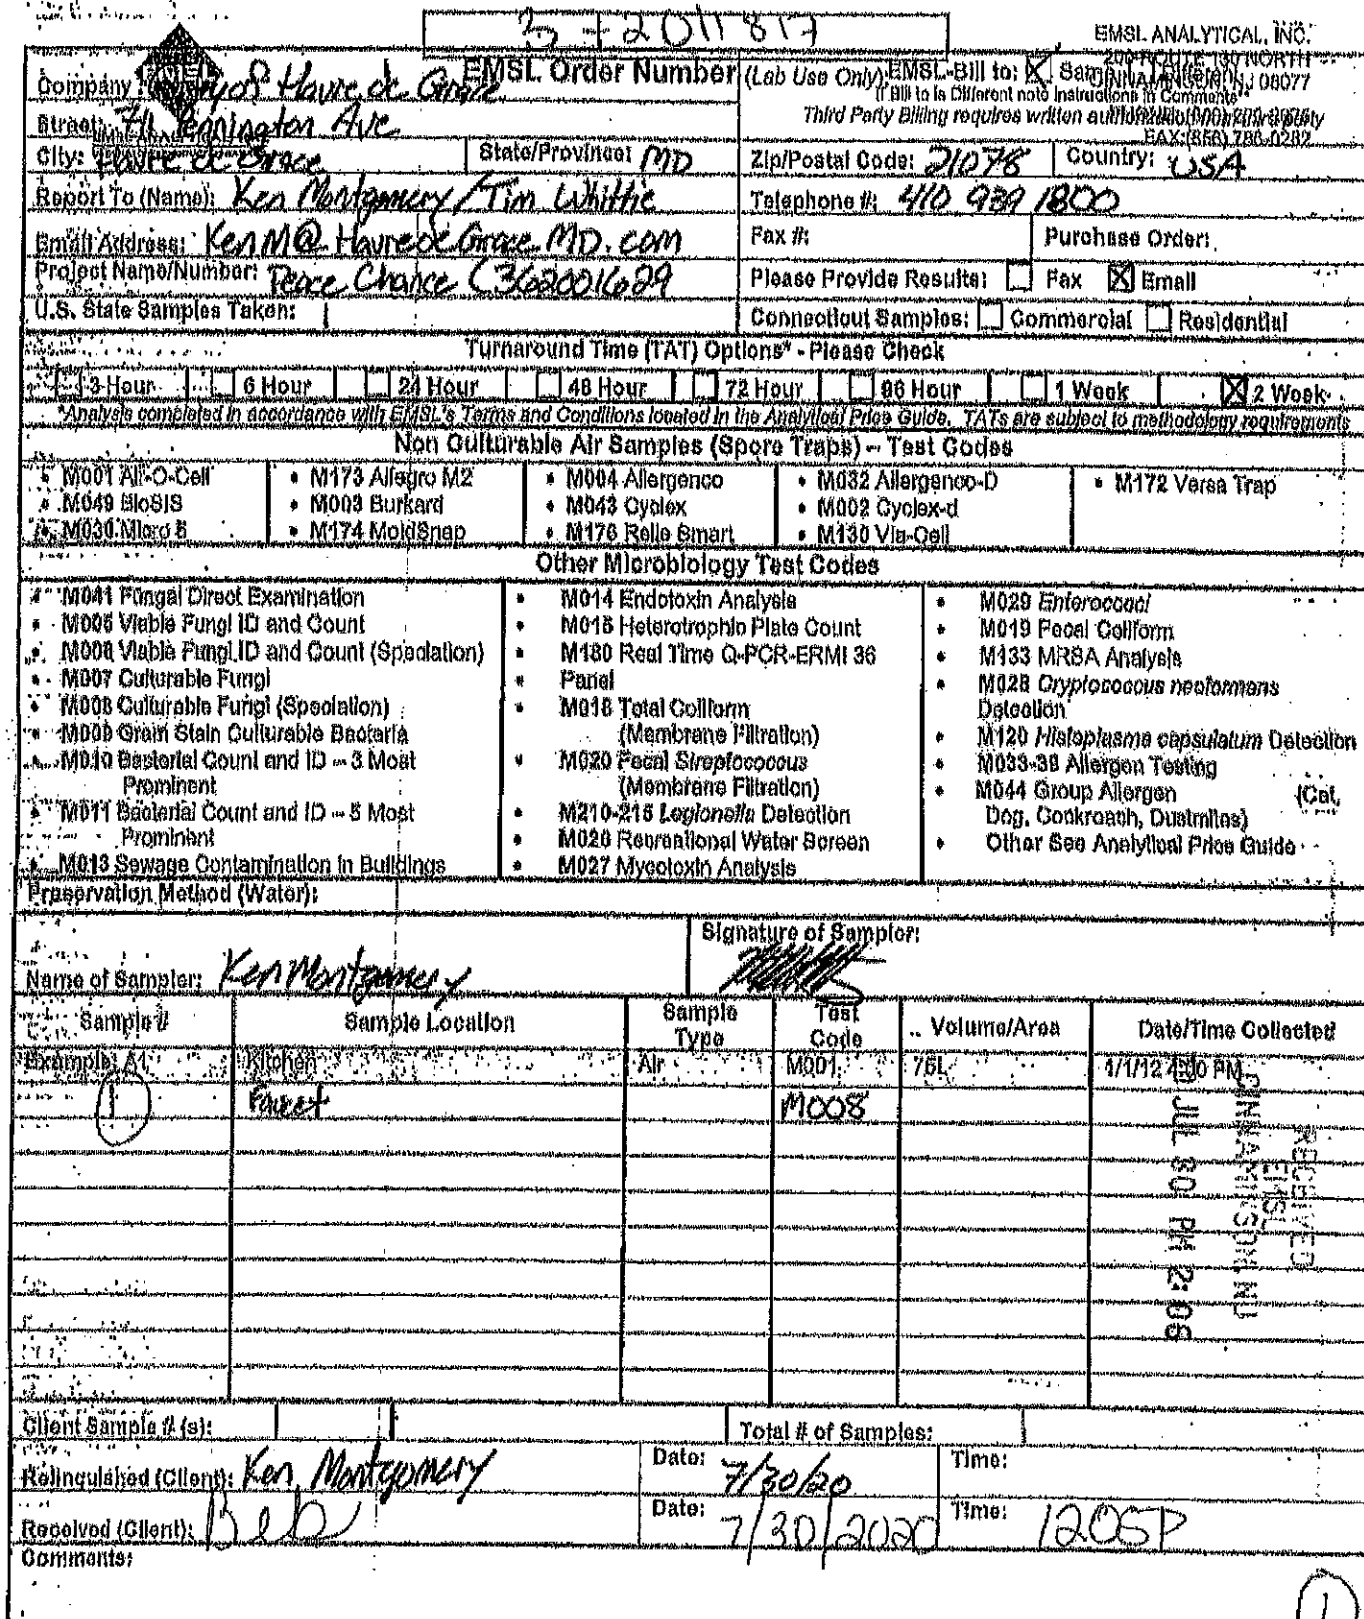 EMSL ANALYTICAL, INC.
200 ROUTE 130 NORTH
CINNAMINSON, NJ 08077
FAX: (856) 786-0262
EMSL Order Number (Lab Use Only):
EMSL-Bill to: ☒ Same
If Bill to is Different note instructions in Comments*
Third Party Billing requires written authorization from third party
Company : of Havre de Grace
Street: 711 Pennington Ave
City: Havre de Grace State/Province: MD Zip/Postal Code: 21078 Country: USA
Report To (Name): Ken Montgomery / Tim Whittie Telephone #: 410 939 1800
Email Address: KenM@HavredeGraceMD.com Fax #: Purchase Order:
Project Name/Number: Peace Chance (362001629 Please Provide Results: ☐ Fax ☒ Email
U.S. State Samples Taken: Connecticut Samples: ☐ Commercial ☐ Residential
Turnaround Time (TAT) Options* - Please Check
☐ 3 Hour ☐ 6 Hour ☐ 24 Hour ☐ 48 Hour ☐ 72 Hour ☐ 96 Hour ☐ 1 Week ☒ 2 Week
*Analysis completed in accordance with EMSL's Terms and Conditions located in the Analytical Price Guide. TATs are subject to methodology requirements
Non Culturable Air Samples (Spore Traps) – Test Codes
• M001 Air-O-Cell • M173 Allegro M2 • M004 Allergenco • M032 Allergenco-D • M172 Versa Trap
• M049 BioSIS • M003 Burkard • M043 Cyclex • M002 Cyclex-d
• M030 Micro 5 • M174 MoldSnap • M176 Relle Smart • M130 Via-Cell
Other Microbiology Test Codes
• M041 Fungal Direct Examination
• M005 Viable Fungi ID and Count
• M006 Viable Fungi ID and Count (Speciation)
• M007 Culturable Fungi
• M008 Culturable Fungi (Speciation)
• M009 Gram Stain Culturable Bacteria
• M010 Bacterial Count and ID – 3 Most
Prominent
• M011 Bacterial Count and ID – 5 Most
Prominent
• M013 Sewage Contamination in Buildings
• M014 Endotoxin Analysis
• M015 Heterotrophic Plate Count
• M180 Real Time Q-PCR-ERMI 36
• Panel
• M018 Total Coliform
(Membrane Filtration)
• M020 Fecal Streptococcus
(Membrane Filtration)
• M210-215 Legionella Detection
• M026 Recreational Water Screen
• M027 Mycotoxin Analysis
• M029 Enterococci
• M019 Fecal Coliform
• M133 MRSA Analysis
• M028 Cryptococcus neoformans
Detection
• M120 Histoplasma capsulatum Detection
• M033-39 Allergen Testing
• M044 Group Allergen (Cat,
Dog, Cockroach, Dustmites)
• Other See Analytical Price Guide
Preservation Method (Water):
Name of Sampler: Ken Montgomery Signature of Sampler:
Sample # Sample Location Sample Type Test Code Volume/Area Date/Time Collected
Example: A1 Kitchen Air M001 75L 1/1/12 4:00 PM
1 Faucet M008
RECEIVED
EMSL
CINNAMINSON NJ
JUL 30 PM 2:06
Client Sample # (s): Total # of Samples:
Relinquished (Client): Ken Montgomery Date: 7/30/20 Time:
Received (Client): Date: 7/30/2020 Time: 1205P
Comments:
1